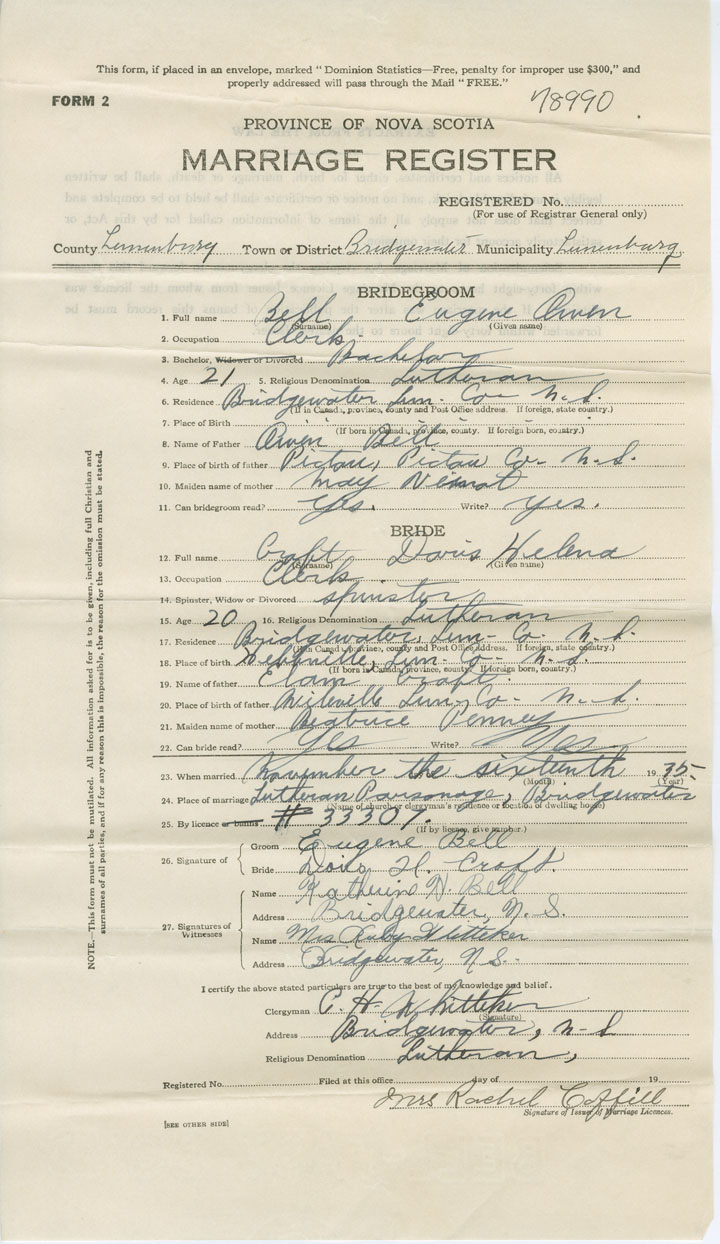 This form, if placed in an envelope, marked "Dominion Statistics—Free, penalty for improper use $300," and
properly addressed will pass through the Mail "FREE."
FORM 2
78990
PROVINCE OF NOVA SCOTIA
MARRIAGE REGISTER
REGISTERED No.
(For use of Registrar General only)
County Lunenburg Town or District Bridgewater Municipality Lunenburg
BRIDEGROOM
1. Full name Bell Eugene Owen
(Surname) (Given name)
2. Occupation Clerk
3. Bachelor, Widower or Divorced Bachelor
4. Age 21 5. Religious Denomination Lutheran
6. Residence Bridgewater Lun. Co- N.S.
(If in Canada, province, county and Post Office address. If foreign, state country.)
7. Place of Birth " " " "
(If born in Canada, province, county. If foreign born, country.)
8. Name of Father Owen Bell
9. Place of birth of father Pictou, Pictou Co- N.S.
10. Maiden name of mother May
11. Can bridegroom read? Yes. Write? Yes.
BRIDE
12. Full name Craft Doris Helena
(Surname) (Given name)
13. Occupation Clerk
14. Spinster, Widow or Divorced spinster
15. Age 20 16. Religious Denomination Lutheran
17. Residence Bridgewater, Lun- Co- N.S.
(If in Canada, province, county and Post Office address. If foreign, state country.)
18. Place of birth Lun- Co- N.S.
(If born in Canada, province, county. If foreign born, country.)
19. Name of father Elam Craft.
20. Place of birth of father Lun- Co- N.S.
21. Maiden name of mother Beatrice Penney
22. Can bride read? Yes Write? Yes.
23. When married November the sixteenth 1935-
(Month) (Year)
24. Place of marriage Lutheran Parsonage, Bridgewater
(Name of church or clergyman's residence or location of dwelling house)
25. By licence or banns # 33307.
(If by licence, give number.)
26. Signature of
Groom Eugene Bell
Bride Doris H. Craft.
27. Signatures of Witnesses
Name Katherine N. Bell
Address Bridgewater, N. S.
Name Mrs Ruby Whitteker
Address Bridgewater, N.S.
I certify the above stated particulars are true to the best of my knowledge and belief.
Clergyman C. H. Whitteker
(Signature)
Address Bridgewater, N-S
Religious Denomination Lutheran,
Registered No. Filed at this office day of 19
Mrs Rachel Coffill
Signature of Issuer of Marriage Licences.
[SEE OTHER SIDE]
NOTE.—This form must not be mutilated. All information asked for is to be given, including full Christian and
surnames of all parties, and if for any reason this is impossible, the reason for the omission must be stated.